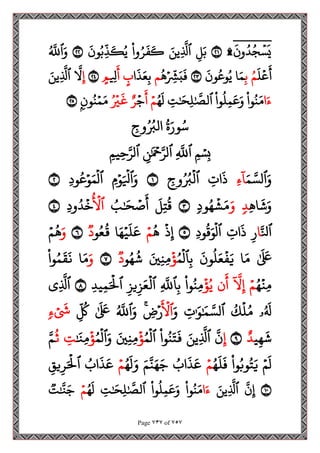 يَسْجُدُونَ۩ ﴿٢١﴾ بَلِ ٱلَّذِينَ كَفَرُوا۟ يُكَذِّبُونَ ﴿٢٢﴾ وَٱللَّهُ
أَعْلَمُ بِمَا يُوعُونَ ﴿٢٣﴾ فَبَشِّرْهُم بِعَذَابٍ أَلِيمٍ ﴿٢٤﴾ إِلَّا ٱلَّذِينَ
ءَامَنُوا۟ وَعَمِلُوا۟ ٱلصَّـٰلِحَـٰتِ لَهُمْ أَجْرٌ غَيْرُ مَمْنُونٍ ﴿٢٥﴾
سُورَةُ البُرُوجِ
بِسْمِ ٱللَّهِ ٱلرَّحْمَـٰنِ ٱلرَّحِيمِ
وَٱلسَّمَآءِ ذَاتِ ٱلْبُرُوجِ ﴿١﴾ وَٱلْيَوْمِ ٱلْمَوْعُودِ ﴿٢﴾
وَشَاهِدٍ وَمَشْهُودٍ ﴿٣﴾ قُتِلَ أَصْحَـٰبُ ٱلْأُخْدُودِ ﴿٤﴾
ٱلنَّارِ ذَاتِ ٱلْوَقُودِ ﴿٥﴾ إِذْ هُمْ عَلَيْهَا قُعُودٌ ﴿٦﴾ وَهُمْ
عَلَىٰ مَا يَفْعَلُونَ بِٱلْمُؤْمِنِينَ شُهُودٌ ﴿٧﴾ وَمَا نَقَمُوا۟
مِنْهُمْ إِلَّآ أَن يُؤْمِنُوا۟ بِٱللَّهِ ٱلْعَزِيزِ ٱلْحَمِيدِ ﴿٨﴾ ٱلَّذِى
لَهُۥ مُلْكُ ٱلسَّمَـٰوَٰتِ وَٱلْأَرْضِ ۚ وَٱللَّهُ عَلَىٰ كُلِّ شَىْءٍ
شَهِيدٌ ﴿٩﴾ إِنَّ ٱلَّذِينَ فَتَنُوا۟ ٱلْمُؤْمِنِينَ وَٱلْمُؤْمِنَـٰتِ ثُمَّ
لَمْ يَتُوبُوا۟ فَلَهُمْ عَذَابُ جَهَنَّمَ وَلَهُمْ عَذَابُ ٱلْحَرِيقِ
﴿١٠﴾ إِنَّ ٱلَّذِينَ ءَامَنُوا۟ وَعَمِلُوا۟ ٱلصَّـٰلِحَـٰتِ لَهُمْ جَنَّـٰتٌ
Page ٧٤٧ of ٧٥٧